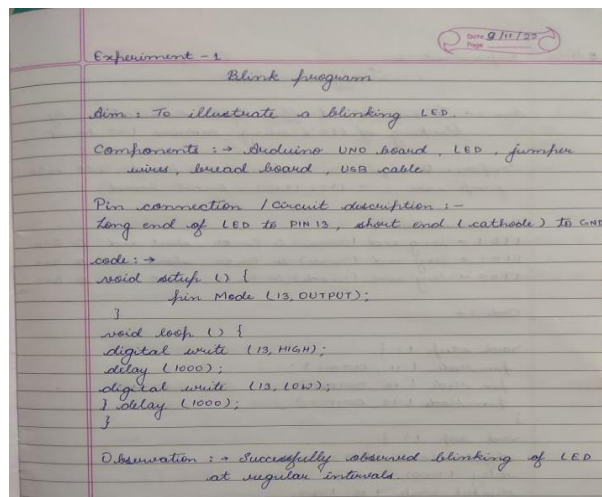 Date 9/11/22
Page
Experiment - 1
Blink program
Aim : To illustrate a blinking LED.
Components :→ Arduino UNO board, LED, jumper
wires, bread board, USB cable
Pin connection / Circuit description :-
Long end of LED to PIN 13, short end (cathode) to GND
code :→
void setup () {
pin Mode (13, OUTPUT);
}
void loop () {
digital write (13, HIGH);
delay (1000);
digital write (13, LOW);
} delay (1000);
}
Observation :→ Successfully observed blinking of LED
at regular intervals.